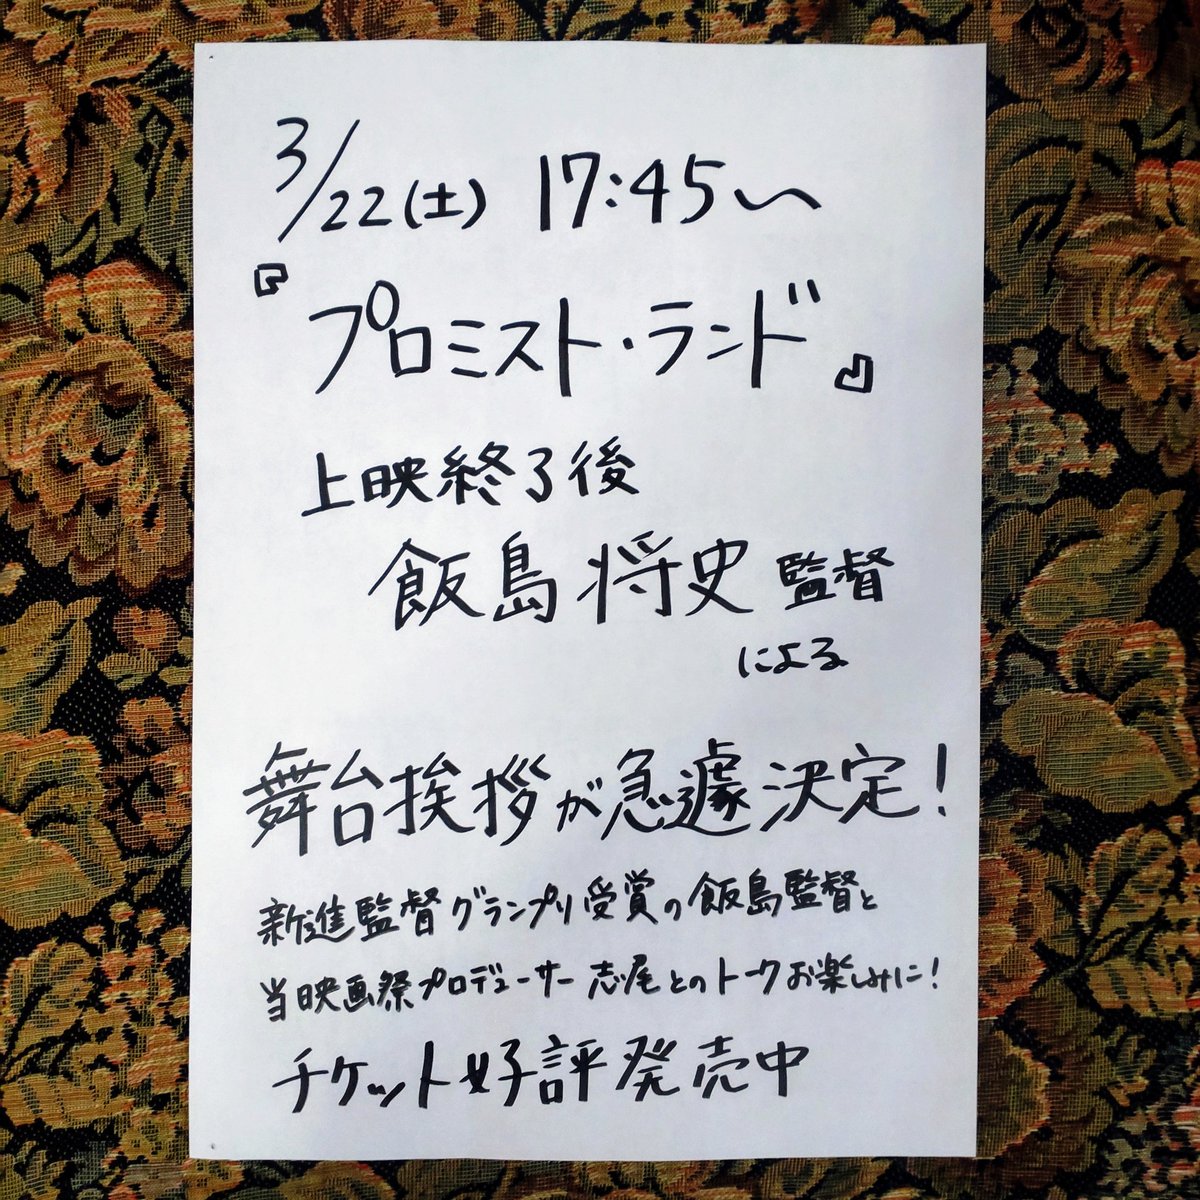 3/22(土) 17:45〜
『プロミスト・ランド』
上映終了後
飯島将史監督
による
舞台挨拶が急遽決定!
新進監督グランプリ受賞の飯島監督と
当映画祭プロデューサー志尾とのトークお楽しみに!
チケット好評発売中